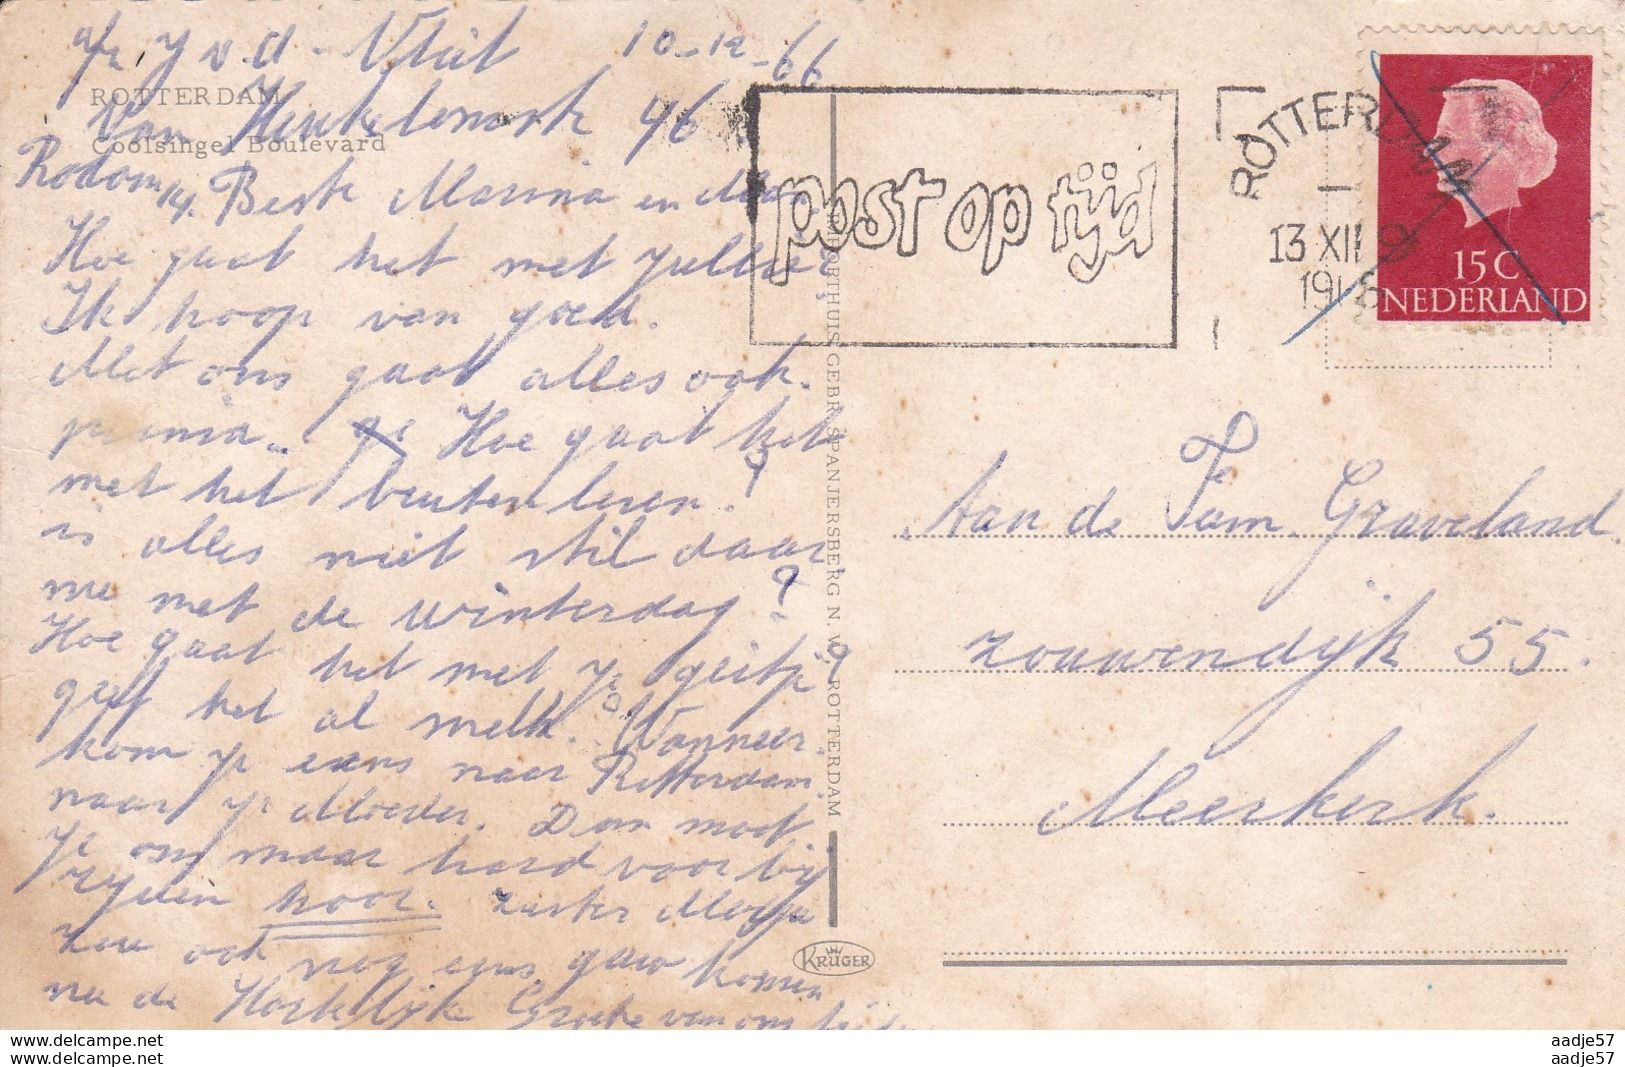 10-12-66
ROTTERDAM
Coolsingel Boulevard
46
Rodam 14. Beste Marina en
Hoe gaat het met jullie?
Ik hoop van goed.
Met ons gaat alles ook
prima. Hoe gaat het
met het buiten leven?
is alles niet stil daar
nu met de winterdag?
Hoe gaat het met je geitje?
geeft het al melk? Wanneer
kom je eens naar Rotterdam
naar je Moeder. Dan moet
je om maar hard voor bij
rijden hoor. zuster
zou ook nog eens gauw komen
nu de Hartelijke Groete van ons
IMPORTHUIS GEBR. SPANJERSBERG N.V. ROTTERDAM
KRÜGER
post op tijd
ROTTERDAM
13 XII
196
15 C
NEDERLAND
Aan de Fam. Graveland.
Zouwendijk 55.
Meerkerk.
www.delcampe.net
www.delcampe.net
aadje57
aadje57